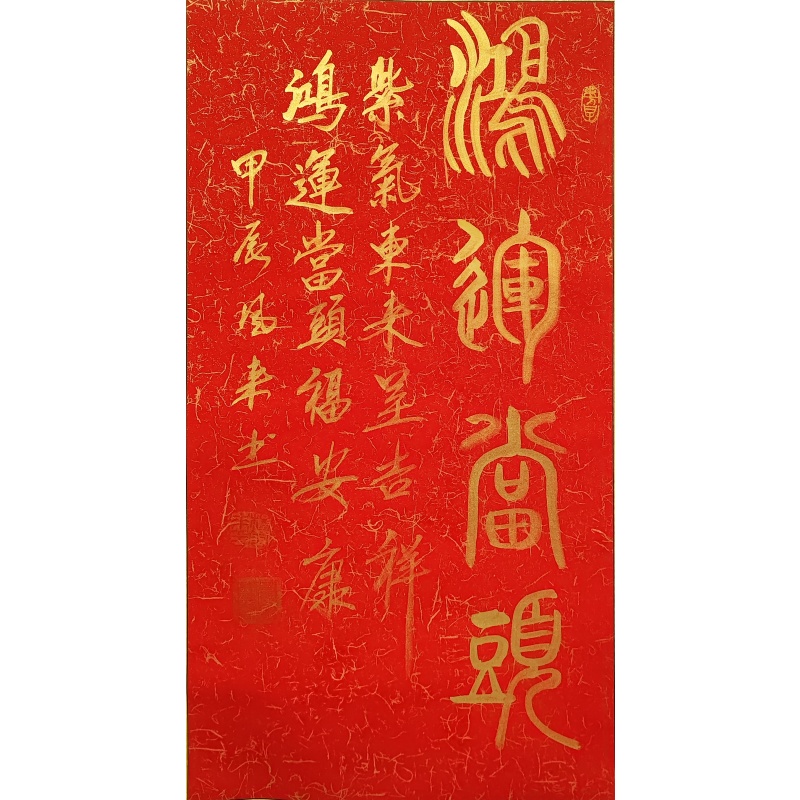 鴻運當頭
紫氣東来呈吉祥
鴻運當頭福安康
甲辰風来书